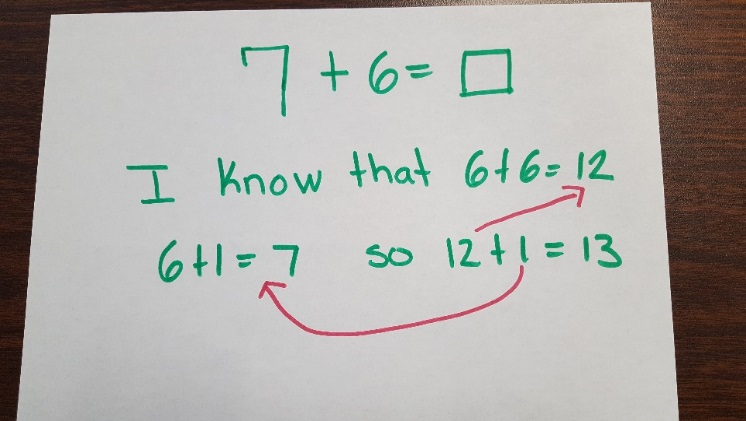 7 + 6 = □
I know that 6+6=12
6+1=7 so 12+1=13